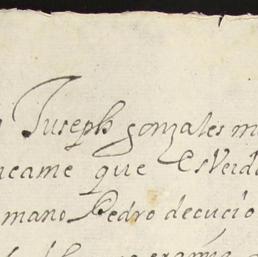 Juseph gonzales m
came que esVerda
mano Pedro decucio